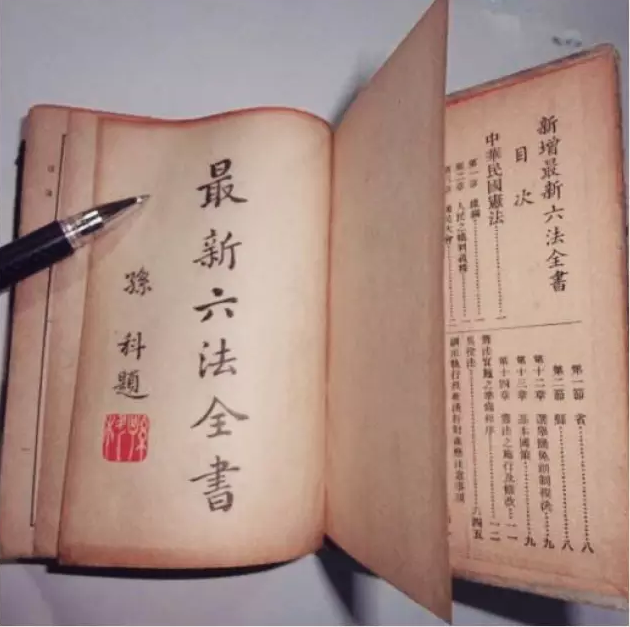 新增最新六法全書
目次
中華民國憲法……一
第一章 總綱……一
第二章 人民之權利義務……一
第三章 國民大會……二
第一節 省……八
第二節 縣……八
第十二章 選舉罷免創制複決……九
第十三章 基本國策……九
第十四章 憲法之施行及修改……一一
憲法實施之準備程序……一二
最新六法全書
孫科題